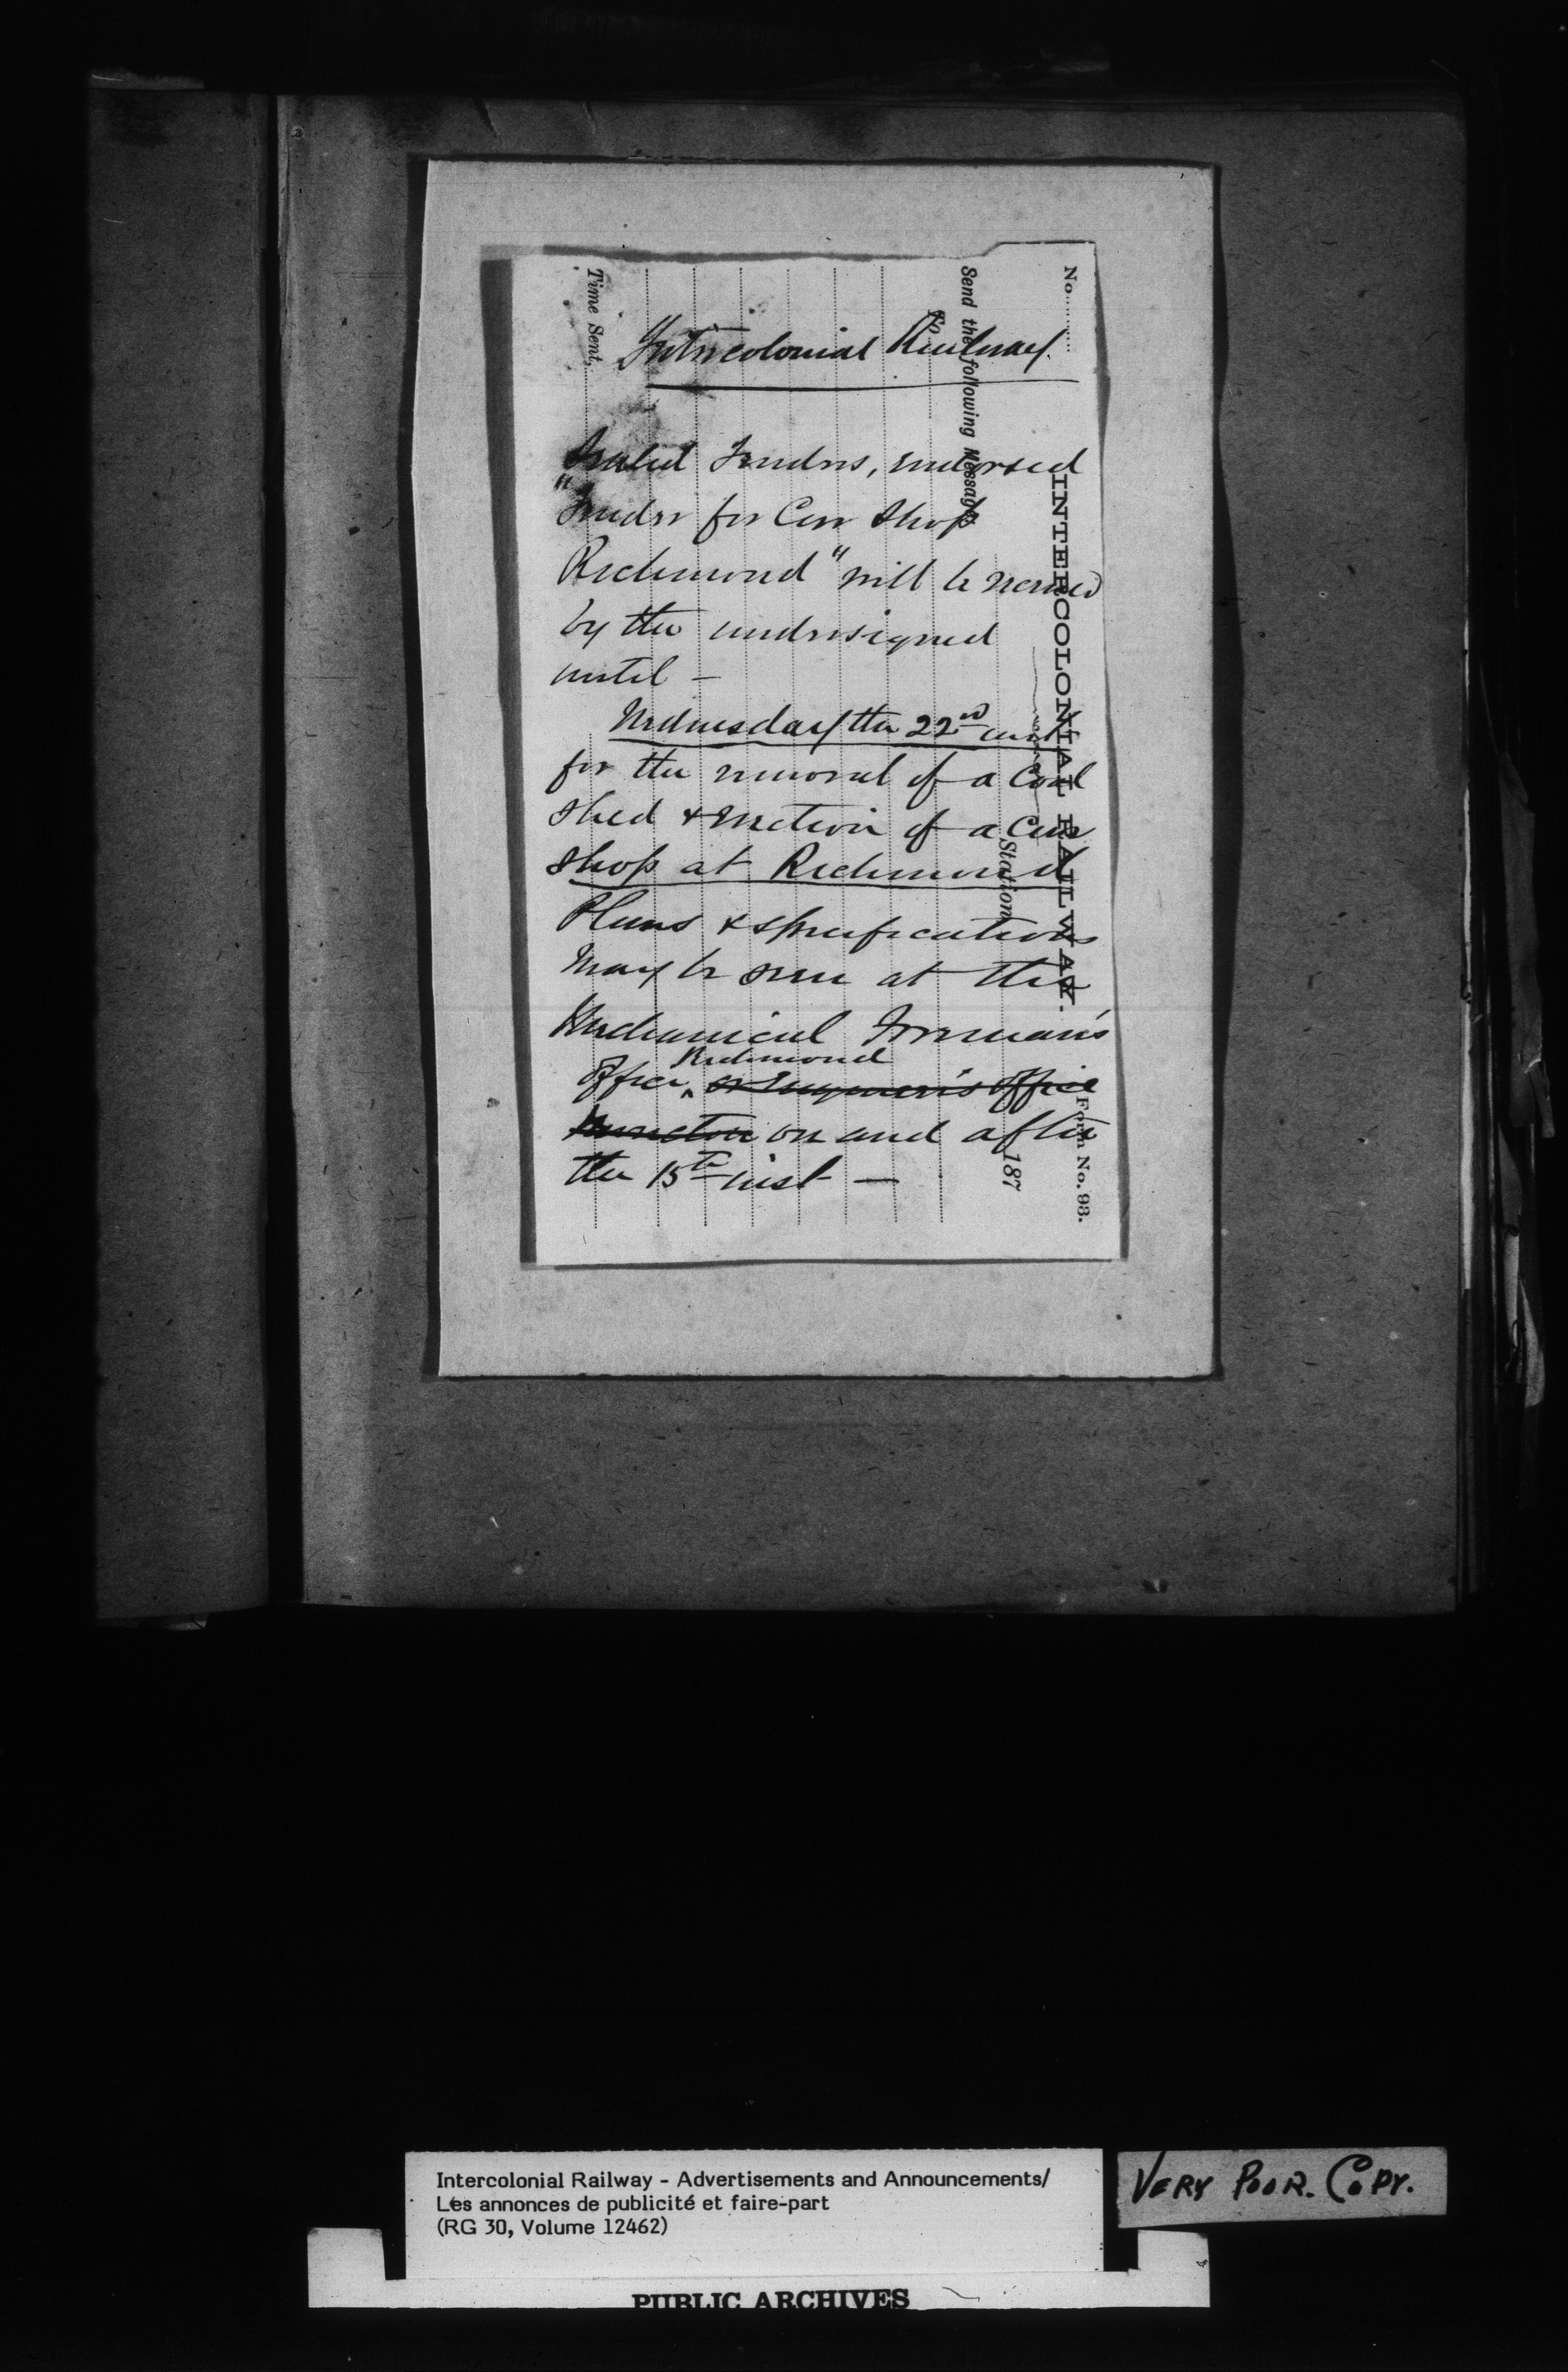 Intercolonial Railway.
Sealed Tenders, endorsed
"Tender for Car Shop
Richmond" will be received
by the undersigned
until —
Wednesday the 22nd inst
for the removal of a Coal
shed & erection of a Car
shop at Richmond
Plans & specifications
may be seen at the
Mechanical Foreman's
Richmond
Office, ^ or Engineer's Office
Moncton on and after
the 15th inst —
No...........
INTERCOLONIAL RAILWAY.
Form No. 93.
Station
187
Send the following Message
Time Sent,
Intercolonial Railway - Advertisements and Announcements/
Les annonces de publicité et faire-part
(RG 30, Volume 12462)
VERY POOR. COPY.
PUBLIC ARCHIVES